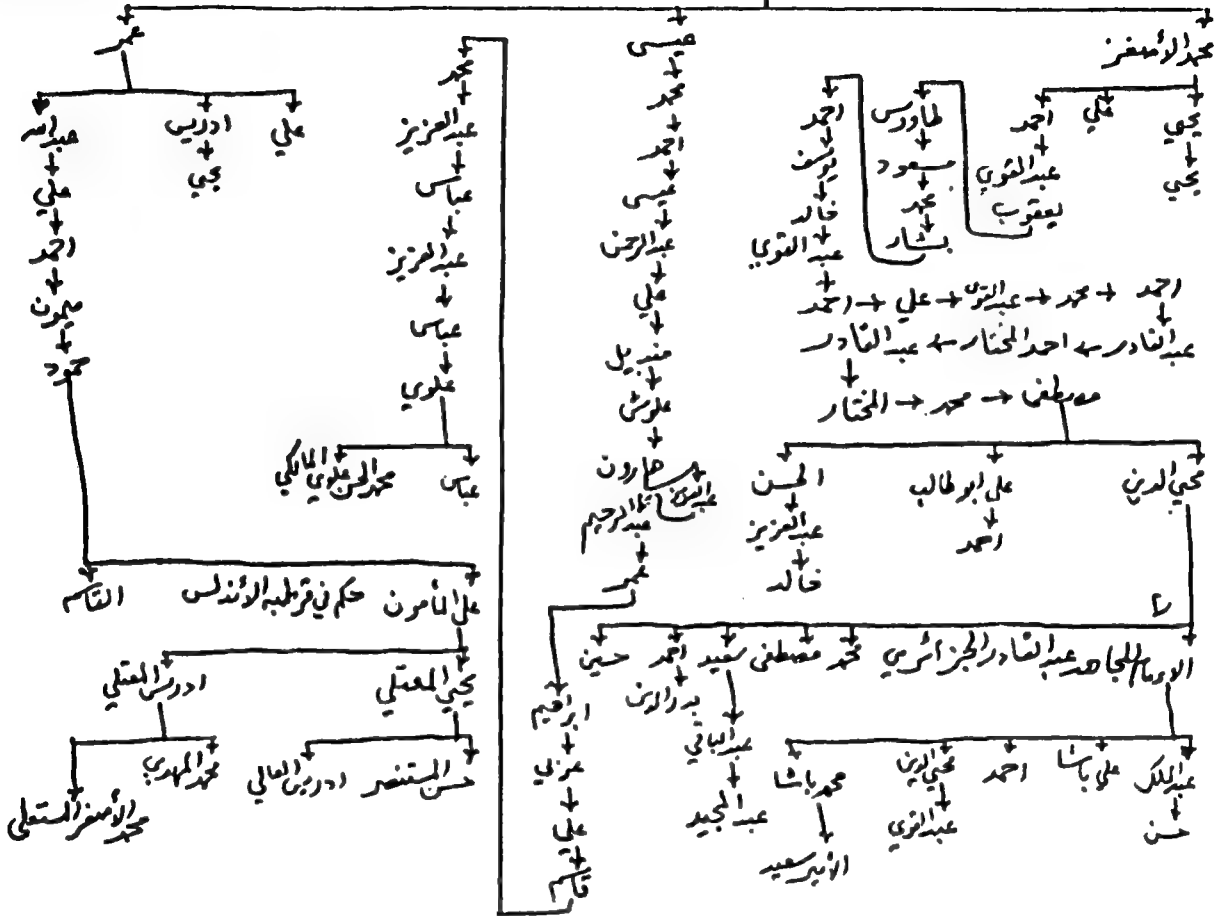 محمد الأصغر
يحيى
يحيى
علي
احمد
عبد القوي
يعقوب
طاووس
مسعود
محمد
بشار
احمد
يوسف
خالد
عبد القوي
احمد ← علي ← عبد القوي ← محمد ← احمد
عبد القادر ← احمد المختار ← عبد القادر
المختار ← محمد ← مصطفى
محيي الدين
علي ابو طالب
احمد
الحسن
عبد العزيز
خالد
الإمام المجاهد عبد القادر الجزائري
محمد
مصطفى
سعيد
عبد الباقي
عبد المجيد
احمد
بدر الدين
حسين
عبد الملك
حسن
علي باشا
احمد
محيي الدين
عبد القوي
محمد باشا
الأمير سعيد
عيسى
محمد
عيسى
عبد الرحمن
علي
منديل
علوش
هارون
عبد الرحيم
عمر
ابراهيم
عربي
علي
قاسم
محمد
عبد العزيز
عباس
عبد العزيز
عباس
علوي
عباس
محمد الحسن علوي المالكي
عمر
علي
ادريس
يحيى
عبد الله
علي
احمد
ميمون
حمود
علي المأمون
حكم في قرطبه الأندلس
القاسم
يحيى المعتلي
حسن المستنصر
ادريس العالي
ادريس المعتلي
محمد المهدي
محمد الأصغر المستعلي